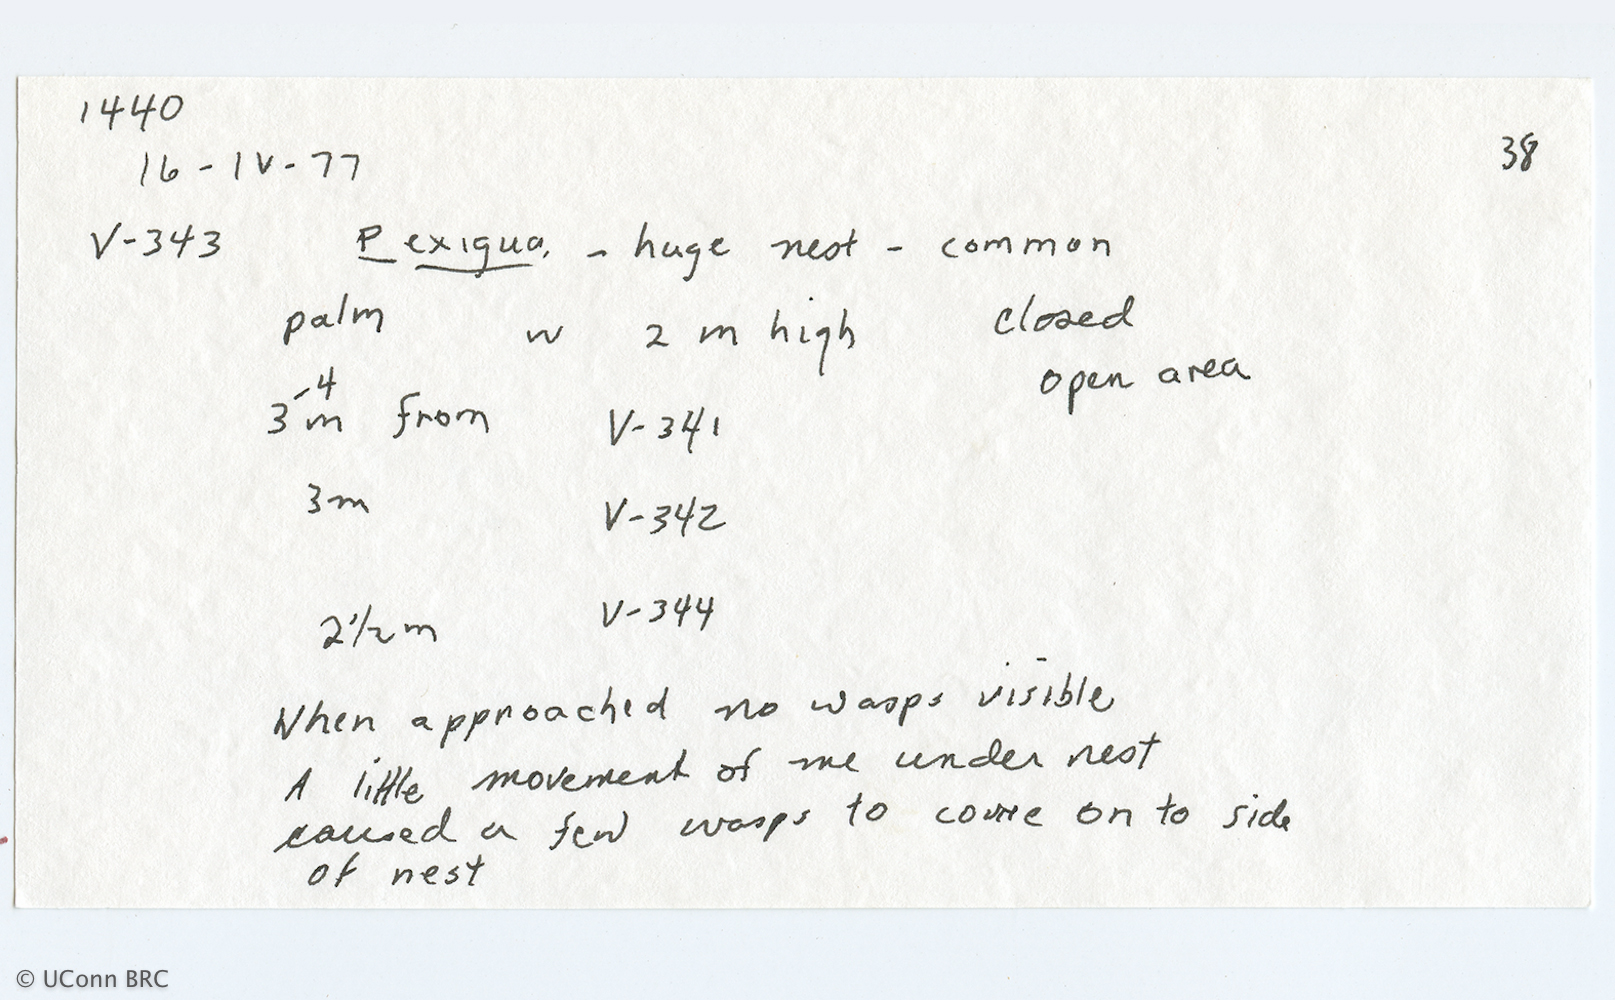 1440
38
16-IV-77
V-343 P exigua. - huge nest - common
palm w 2 m high closed
open area
3-4 m from V-341
3m V-342
2 1/2 m V-344
When approached no wasps visible
A little movement of me under nest
caused a few wasps to come on to side
of nest
© UConn BRC